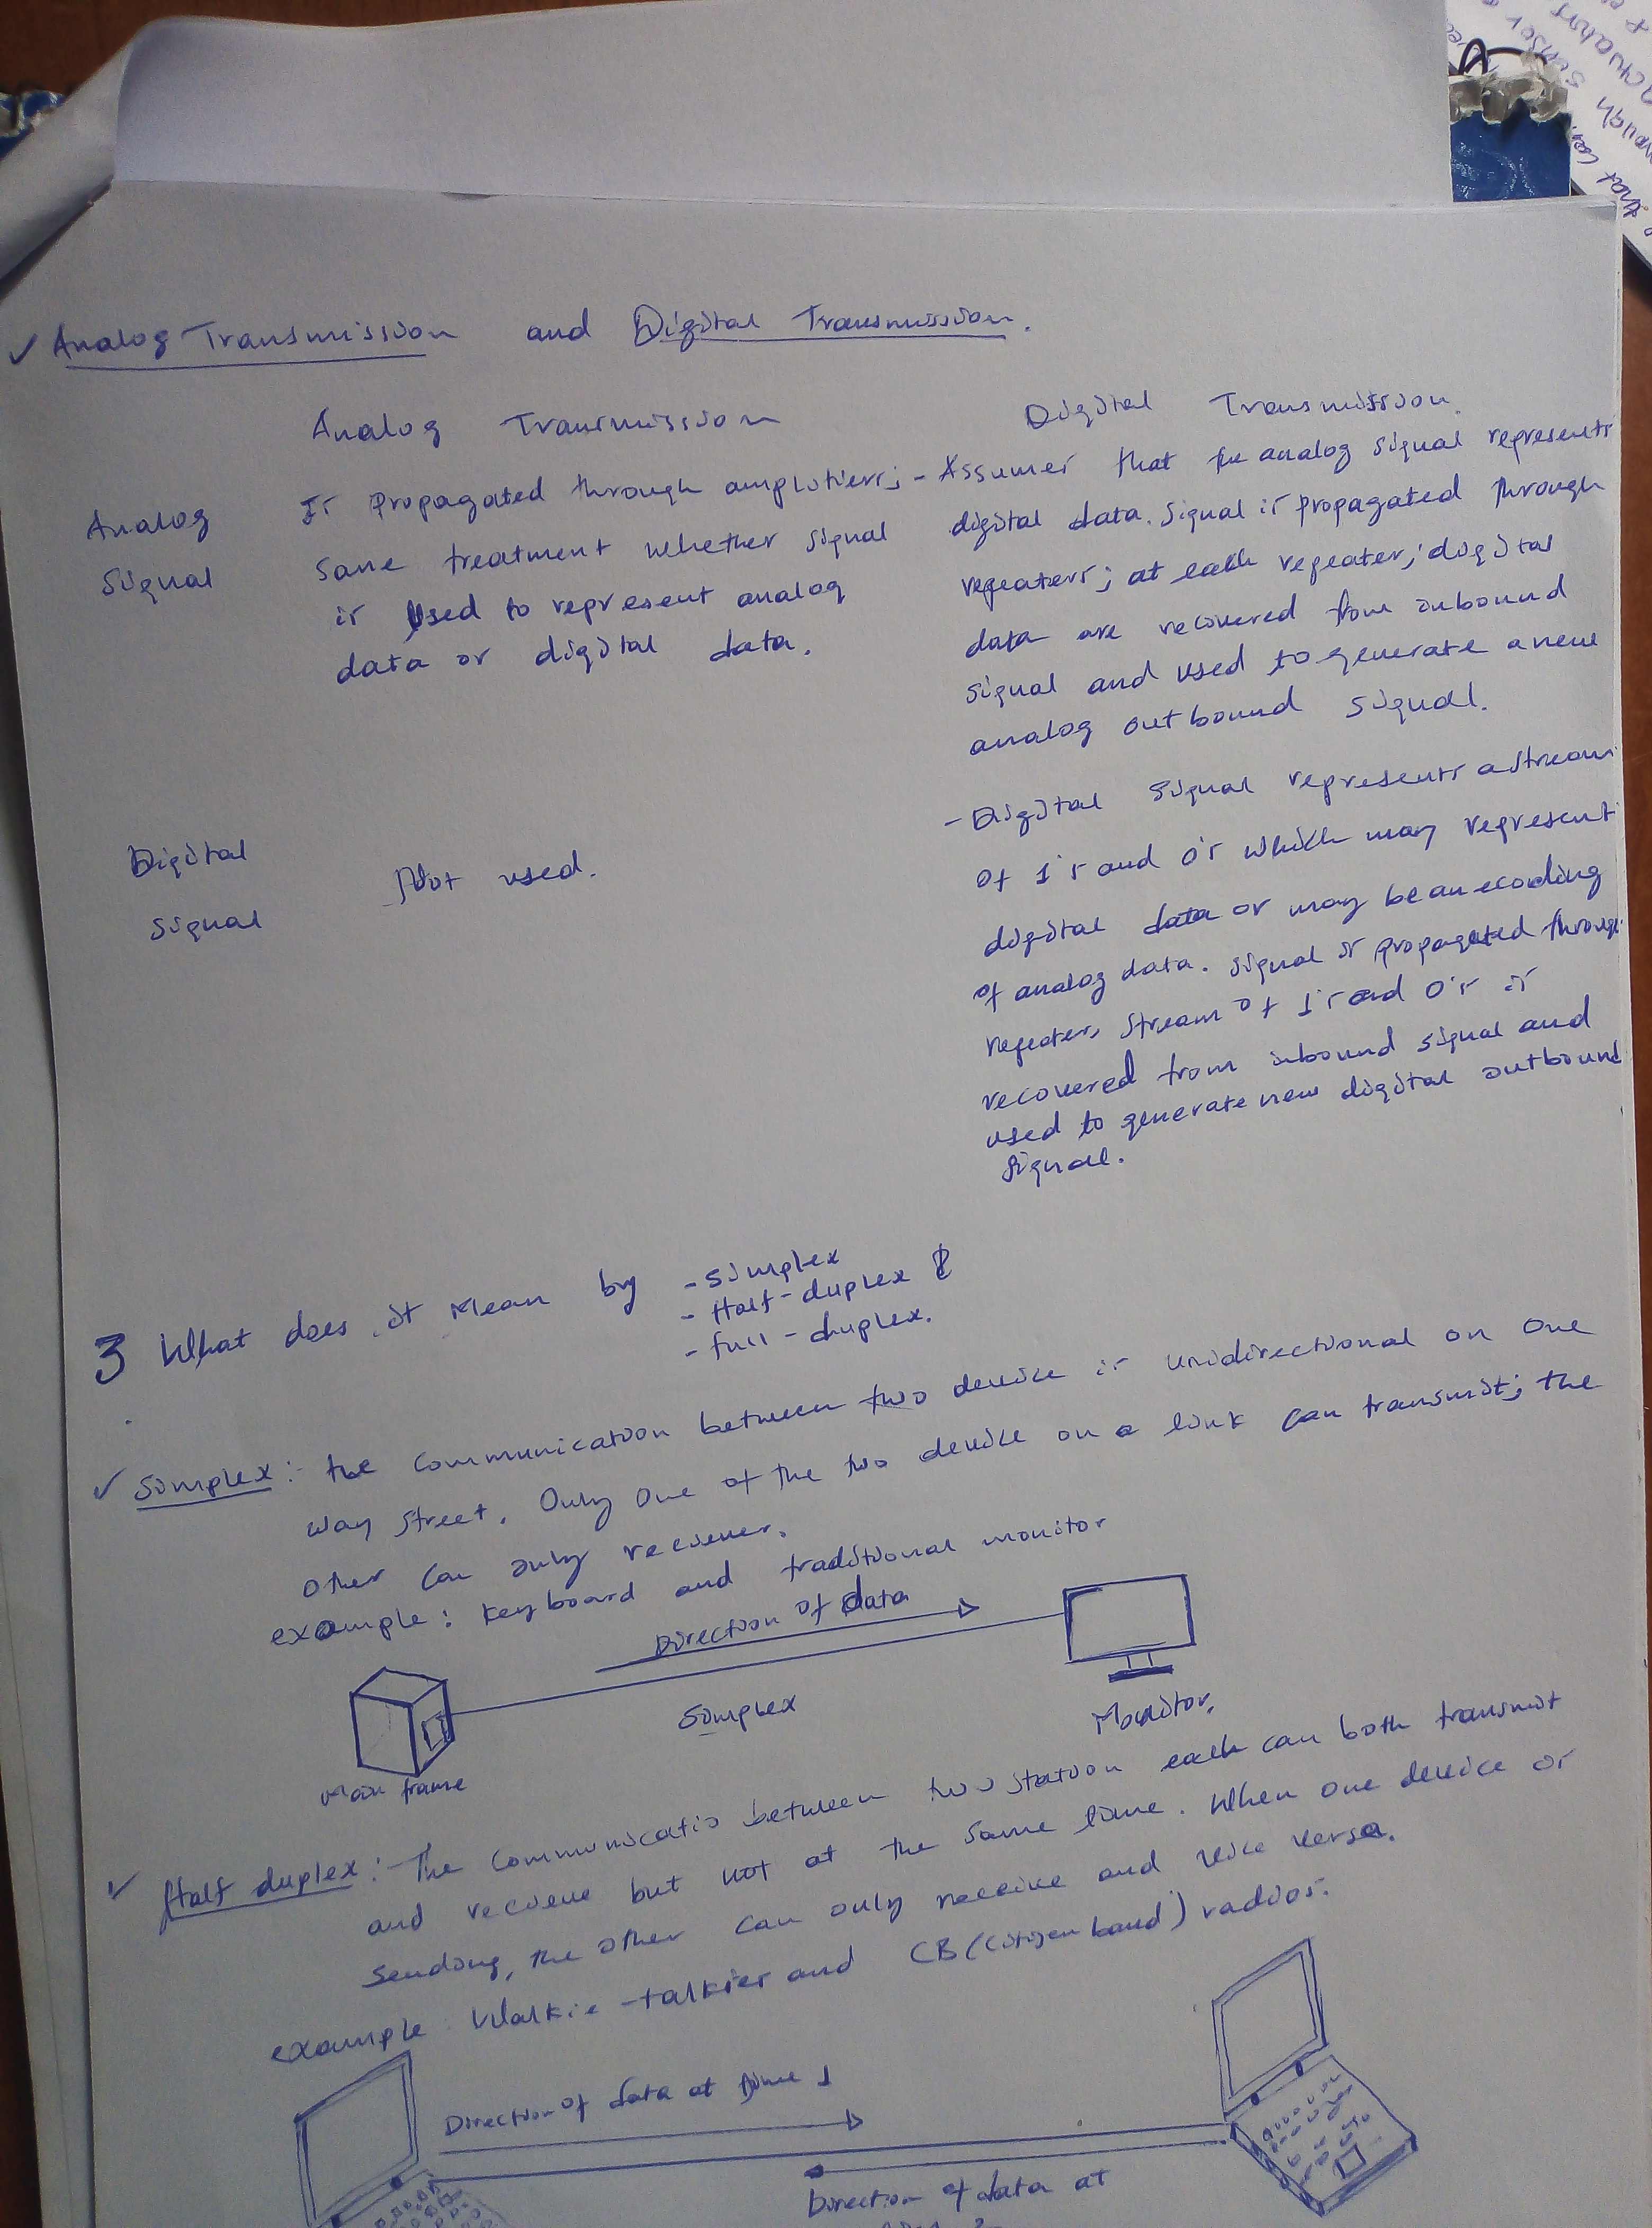 ✓ Analog Transmission and Digital Transmission.
Analog Transmission
Digital Transmission.
Analog
Signal
Is Propagated through amplifiers;
same treatment whether signal
is used to represent analog
data or digital data.
- Assumes that the analog signal represents
digital data. Signal is propagated through
repeaters; at each repeater; digital
data are recovered from inbound
signal and used to generate a new
analog outbound signal.
Digital
signal
Not used.
- Digital signal represents a stream
of 1's and 0's which may represent
digital data or may be an ecoding
of analog data. signal is propagated through
repeaters stream of 1's and 0's is
recovered from inbound signal and
used to generate new digital outbound
signal.
3 What does it Mean by
- Simplex
- Half-duplex &
- full-duplex.
✓ Simplex: the communication between two device is unidirectional on one
way street. Only one of the two device on a link can transmit; the
other can only reciever.
example: keyboard and traditional monitor
Direction of data
Simplex
Monitor.
Main frame
✓ Half duplex: The communicatio between two station each can both transmit
and recieve but not at the same time. When one device is
sending, the other can only receive and vice versa.
example: Walkie-talkies and CB (citizen band) radios.
Direction of data at time 1
Direction of data at